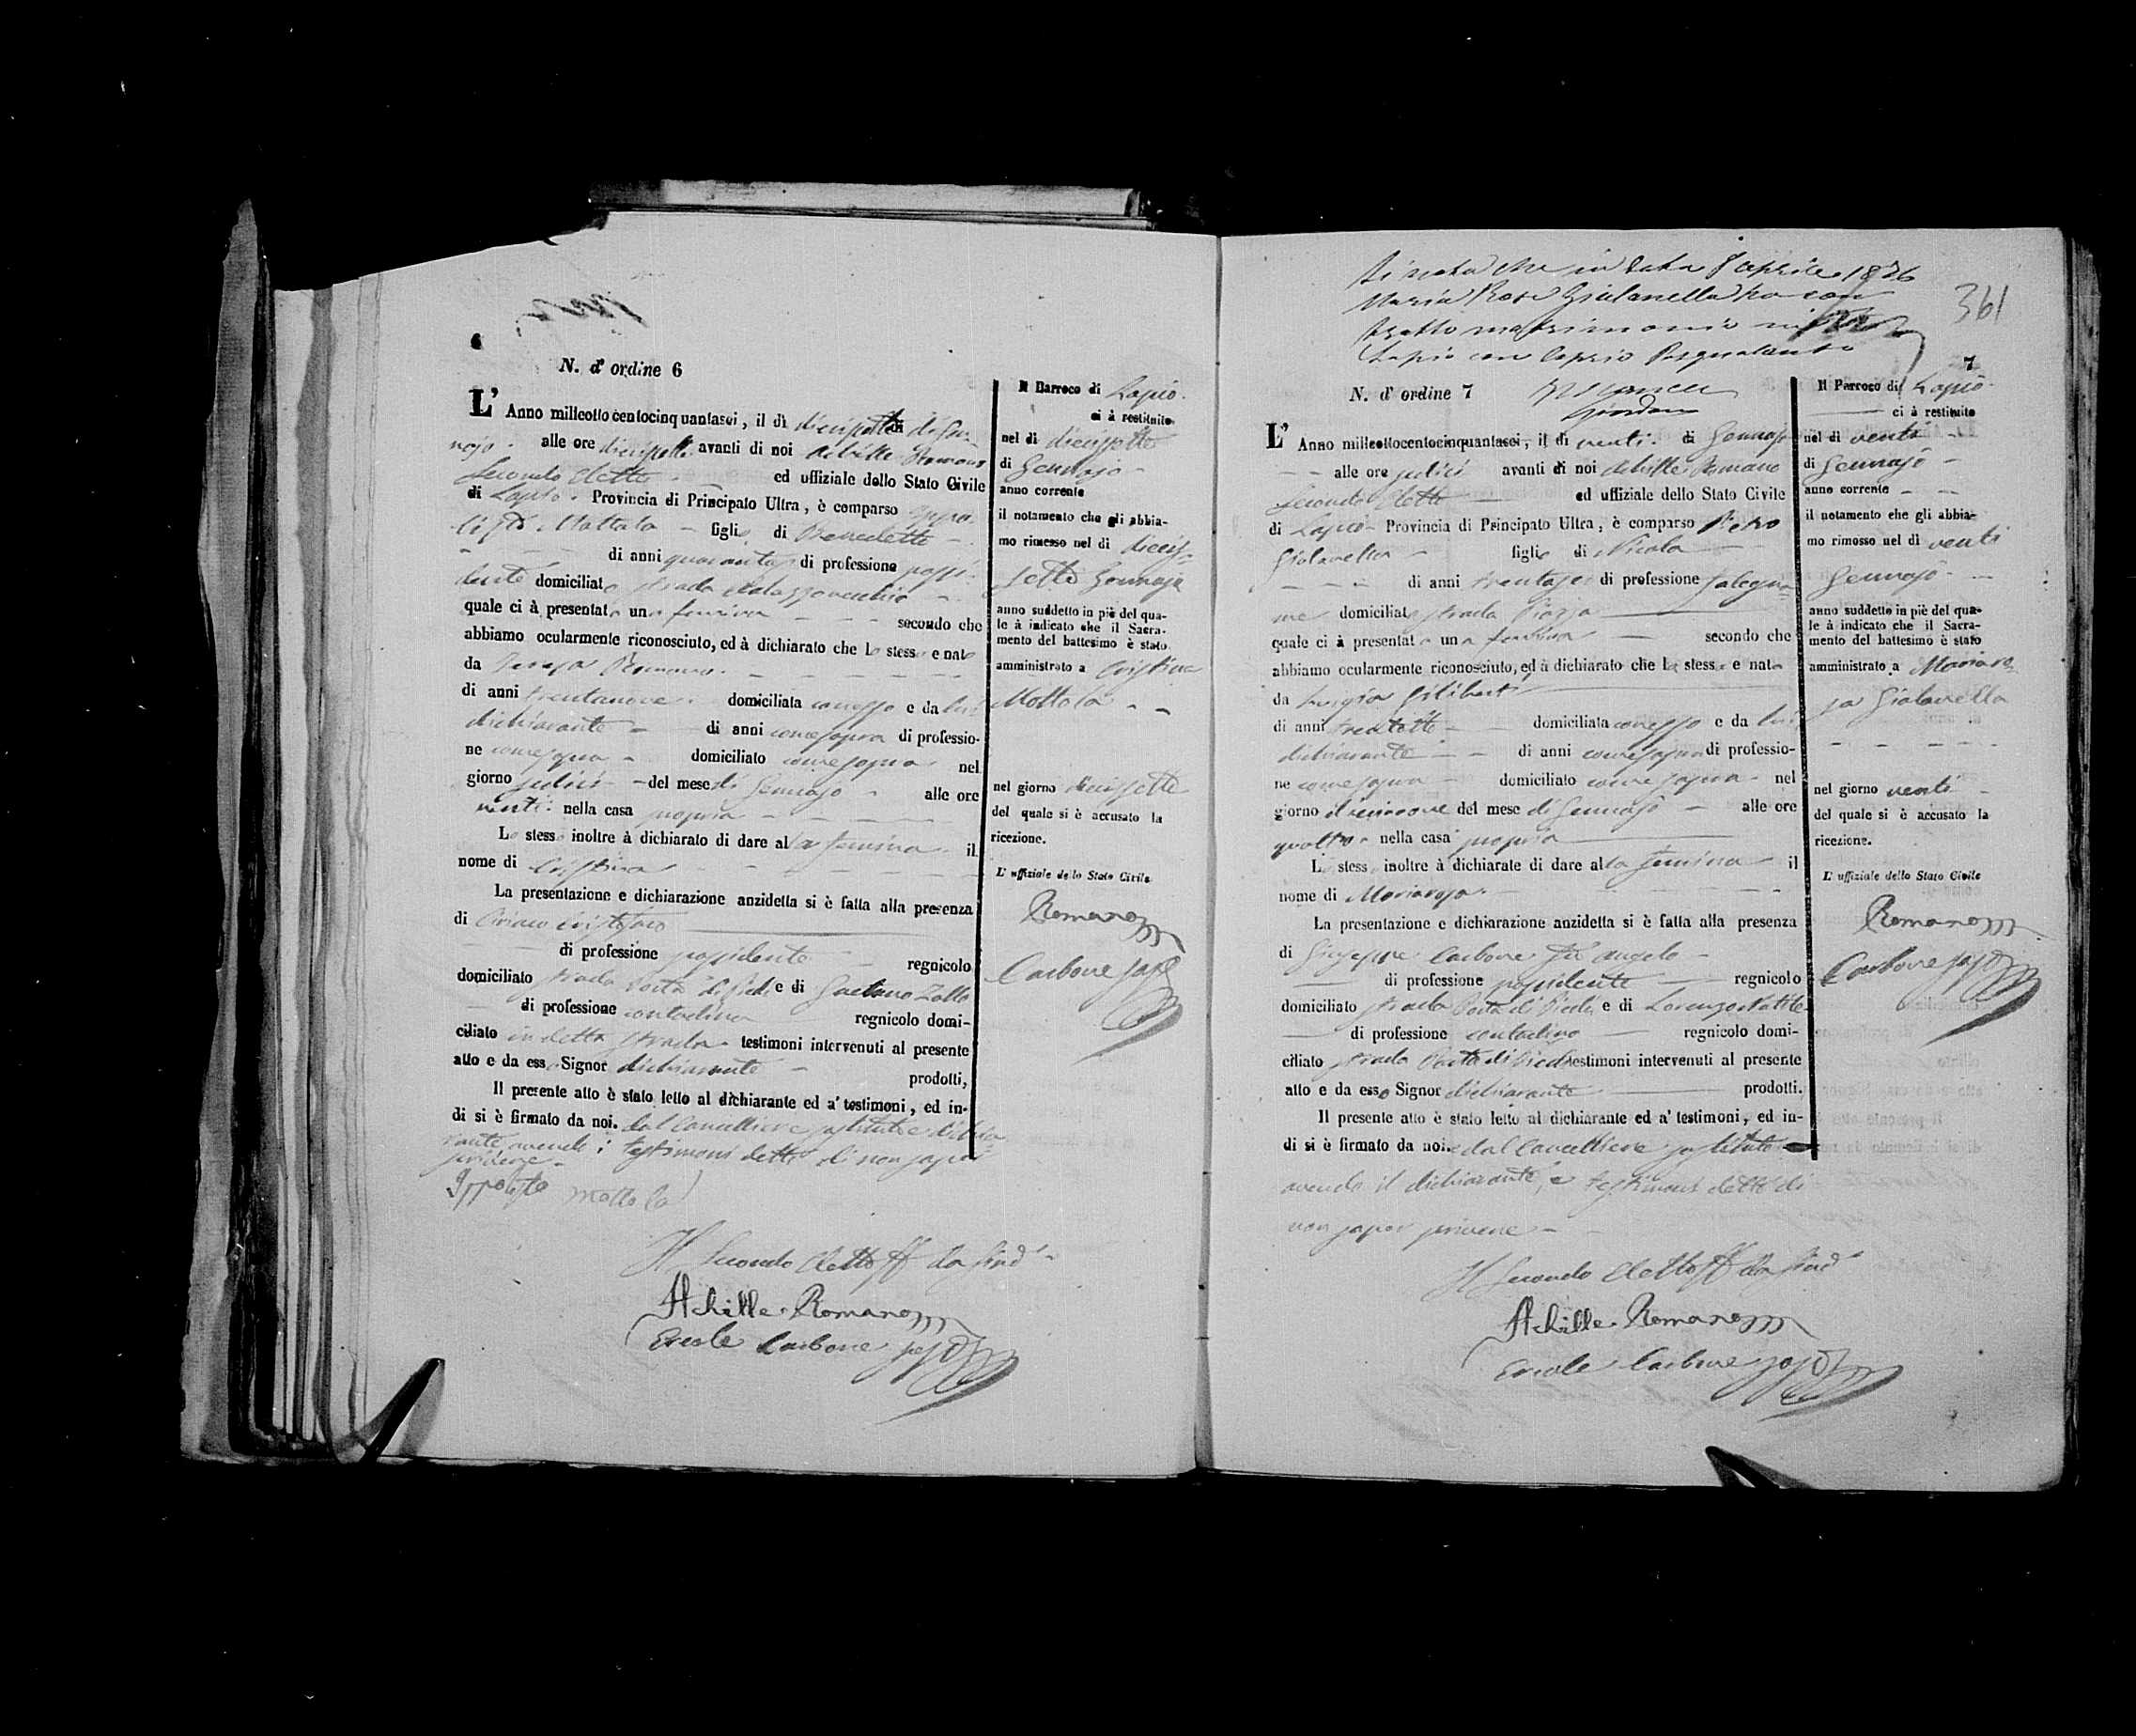 6
N. d' ordine 6
L' Anno milleottocentocinquantasei, il dì diecisette di Gen-
najo alle ore diecisette avanti di noi Achille Romano
Secondo Eletto ed uffiziale dello Stato Civile
di Lapio Provincia di Principato Ultra, è comparso Ippo-
lito Mattola figlio di Benedetto
di anni quaranta di professione possi-
dente domiciliato strada
quale ci à presentata una femina secondo che
abbiamo ocularmente riconosciuto, ed à dichiarato che la stessa e nata
da Teresa Romano
di anni trentanove domiciliata con esso e da lui
dichiarante di anni come sopra di professio-
ne come sopra domiciliato come sopra nel
giorno sedici del mese di Gennajo alle ore
venti nella casa propria
Lo stesso inoltre à dichiarato di dare alla femina il
nome di Cristina
La presentazione e dichiarazione anzidetta si è fatta alla presenza
di Ciriaco Cristofaro
di professione possidente regnicolo
domiciliato strada Porta di Piedi e di Gaetano Zollo
di professione contadino regnicolo domi-
ciliato in detta strada testimoni intervenuti al presente
atto e da esso Signor dichiarante prodotti,
Il presente atto è stato letto al dichiarante ed a' testimoni, ed in-
di si è firmato da noi, dal Cancelliere sostituto e dichia-
rante avendo i testimoni detto di non saper
scrivere
Ippolito Mottola
Il Secondo Eletto ff da Sind°
Achille Romano
Ercole Carbone sost°
Il Parroco di Lapio
ci à restituito
nel dì diecisette
di Gennajo
anno corrente
il notamento che gli abbia-
mo rimesso nel dì diecis-
sette Gennajo
anno suddetto in piè del qua-
le à indicato che il Sacra-
mento del battesimo è stato
amministrato a Cristina
Mottola
nel giorno diecissette
del quale si è accusato la
ricezione.
L' uffiziale dello Stato Civile
Romano
Carbone sost°
Si nota che in data 8 aprile 1876
Maria Rosa Giulanella ha con
tratto matrimonio in
Lapio con Caprio Pasqualantonio
Giordano
361
7
N. d' ordine 7
L' Anno milleottocentocinquantasei, il dì venti di Gennajo
alle ore sedici avanti di noi Achille Romano
Secondo Eletto ed uffiziale dello Stato Civile
di Lapio Provincia di Principato Ultra, è comparso Pietro
Giolanella figlio di Nicola
di anni trentasei di professione falegna-
me domiciliato strada Piazza
quale ci à presentata una femina secondo che
abbiamo ocularmente riconosciuto, ed à dichiarato che la stessa e nata
da Luigia Ciliberti
di anni trentotto domiciliata con esso e da lui
dichiarante di anni come sopra di professio-
ne come sopra domiciliato come sopra nel
giorno diecinove del mese di Gennajo alle ore
quattro nella casa propria
Lo stesso inoltre à dichiarato di dare alla femina il
nome di Mariarosa
La presentazione e dichiarazione anzidetta si è fatta alla presenza
di Giuseppe Carbone fu Angelo
di professione possidente regnicolo
domiciliato strada Porta di Piedi e di Lorenzo Natale
di professione contadino regnicolo domi-
ciliato strada Porta di Piedi testimoni intervenuti al presente
atto e da esso Signor dichiarante prodotti.
Il presente atto è stato letto al dichiarante ed a' testimoni, ed in-
di si è firmato da noi, e dal Cancelliere sostituto
avendo il dichiarante, e testimoni detto di
non saper scrivere
Il Secondo Eletto ff da Sind°
Achille Romano
Ercole Carbone sost°
Il Parroco di Lapio
ci à restituito
nel dì venti
di Gennajo
anno corrente
il notamento che gli abbia-
mo rimesso nel dì venti
Gennajo
anno suddetto in piè del qua-
le à indicato che il Sacra-
mento del battesimo è stato
amministrato a Mariaro-
sa Giolanella
nel giorno venti
del quale si è accusato la
ricezione.
L' uffiziale dello Stato Civile
Romano
Carbone sost°